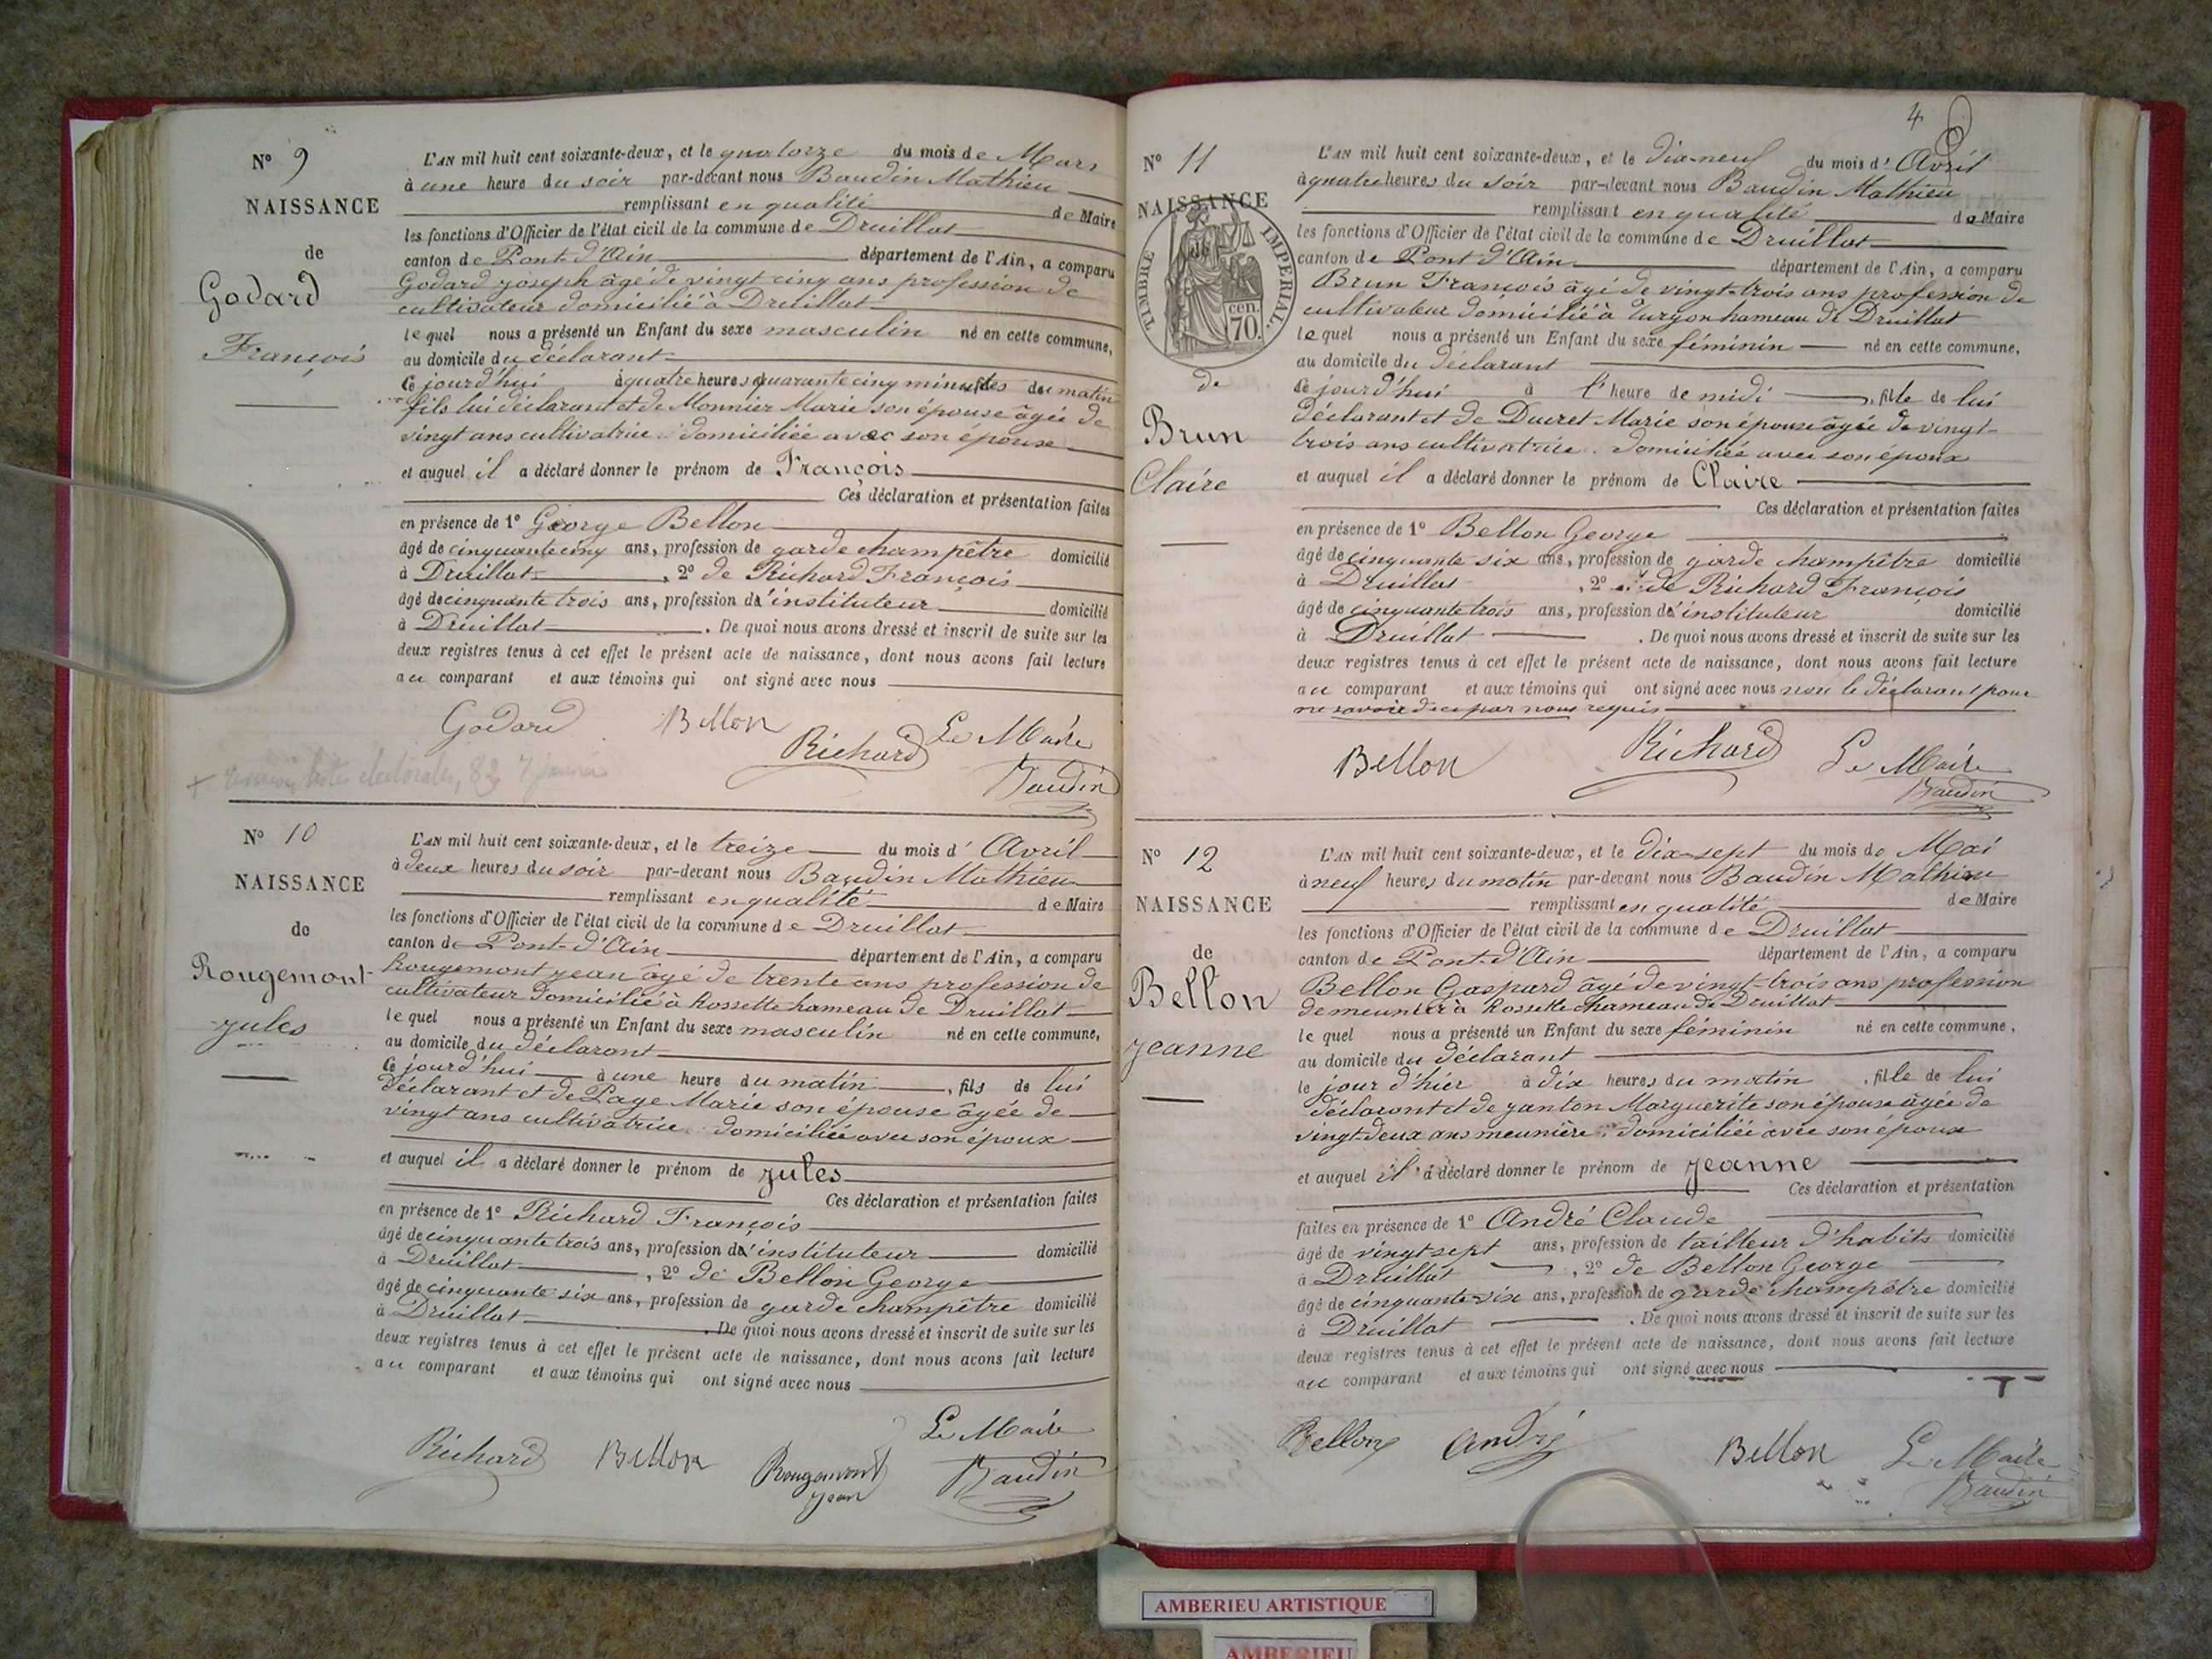 N° 9
NAISSANCE
de
Godard
François
L'AN mil huit cent soixante-deux, et le quatorze du mois de Mars
à une heure du soir par-devant nous Baudin Mathieu
remplissant en qualité de Maire
les fonctions d'Officier de l'état civil de la commune de Druillat
canton de Pont-d'Ain département de l'Ain, a comparu
Godard Joseph âgé de vingt cinq ans profession de
cultivateur domicilié à Druillat
lequel nous a présenté un Enfant du sexe masculin né en cette commune,
au domicile du déclarant
Ce jourd'hui à quatre heures quarante cinq minutes du matin
fils lui déclarant et de Monnier Marie son épouse âgée de
vingt ans cultivatrice domiciliée avec son épouse
et auquel il a déclaré donner le prénom de François
Ces déclaration et présentation faites
en présence de 1° George Bellon
âgé de cinquante cinq ans, profession de garde champêtre domicilié
à Druillat, 2° de Richard François
âgé de cinquante trois ans, profession d'instituteur domicilié
à Druillat. De quoi nous avons dressé et inscrit de suite sur les
deux registres tenus à cet effet le présent acte de naissance, dont nous avons fait lecture
au comparant et aux témoins qui ont signé avec nous
Godard Bellon Richard Le Maire
Baudin
N° 10
NAISSANCE
de
Rougemont
Jules
L'AN mil huit cent soixante-deux, et le treize du mois d'Avril
à deux heures du soir par-devant nous Baudin Mathieu
remplissant en qualité de Maire
les fonctions d'Officier de l'état civil de la commune de Druillat
canton de Pont-d'Ain département de l'Ain, a comparu
Rougemont Jean âgé de trente ans profession de
cultivateur domicilié à Rossette hameau de Druillat
lequel nous a présenté un Enfant du sexe masculin né en cette commune,
au domicile du déclarant
Ce jourd'hui à une heure du matin, fils de lui
déclarant et de Page Marie son épouse âgée de
vingt ans cultivatrice domiciliée avec son époux
et auquel il a déclaré donner le prénom de Jules
Ces déclaration et présentation faites
en présence de 1° Richard François
âgé de cinquante trois ans, profession d'instituteur domicilié
à Druillat, 2° de Bellon George
âgé de cinquante six ans, profession de garde champêtre domicilié
à Druillat. De quoi nous avons dressé et inscrit de suite sur les
deux registres tenus à cet effet le présent acte de naissance, dont nous avons fait lecture
au comparant et aux témoins qui ont signé avec nous
Richard Bellon Rougemont Jean Le Maire
Baudin
4
N° 11
NAISSANCE
de
TIMBRE IMPERIAL
70 cen.
de
Brun
Claire
L'AN mil huit cent soixante-deux, et le dix-neuf du mois d'Avril
à quatre heures du soir par-devant nous Baudin Mathieu
remplissant en qualité de Maire
les fonctions d'Officier de l'état civil de la commune de Druillat
canton de Pont d'Ain département de l'Ain, a comparu
Brun François âgé de vingt-trois ans profession de
cultivateur domicilié à Turgon hameau de Druillat
lequel nous a présenté un Enfant du sexe féminin né en cette commune,
au domicile du déclarant
Ce jourd'hui à l'heure de midi, fille de lui
déclarant et de Ducret Marie son épouse âgée de vingt-
trois ans cultivatrice domiciliée avec son époux
et auquel il a déclaré donner le prénom de Claire
Ces déclaration et présentation faites
en présence de 1° Bellon George
âgé de cinquante six ans, profession de garde champêtre domicilié
à Druillat, 2° de Richard François
âgé de cinquante trois ans, profession d'instituteur domicilié
à Druillat. De quoi nous avons dressé et inscrit de suite sur les
deux registres tenus à cet effet le présent acte de naissance, dont nous avons fait lecture
au comparant et aux témoins qui ont signé avec nous non le déclarant pour
ne savoir de ce par nous requis
Bellon Richard Le Maire
Baudin
N° 12
NAISSANCE
de
Bellon
Jeanne
L'AN mil huit cent soixante-deux, et le dix-sept du mois de Mai
à neuf heures du matin par-devant nous Baudin Mathieu
remplissant en qualité de Maire
les fonctions d'Officier de l'état civil de la commune de Druillat
canton de Pont-d'Ain département de l'Ain, a comparu
Bellon Gaspard âgé de vingt-trois ans profession
de meunier à Rossette hameau de Druillat
lequel nous a présenté un Enfant du sexe féminin né en cette commune,
au domicile du déclarant
le jour d'hier à dix heures du matin, fille de lui
déclarant et de Janton Marguerite son épouse âgée de
vingt-deux ans meunière domiciliée avec son époux
et auquel il a déclaré donner le prénom de Jeanne
Ces déclaration et présentation
faites en présence de 1° André Claude
âgé de vingt sept ans, profession de tailleur d'habits domicilié
à Druillat, 2° de Bellon George
âgé de cinquante-six ans, profession de garde champêtre domicilié
à Druillat. De quoi nous avons dressé et inscrit de suite sur les
deux registres tenus à cet effet le présent acte de naissance, dont nous avons fait lecture
au comparant et aux témoins qui ont signé avec nous
Bellon André Bellon Le Maire
Baudin
AMBERIEU ARTISTIQUE
AMBERIEU